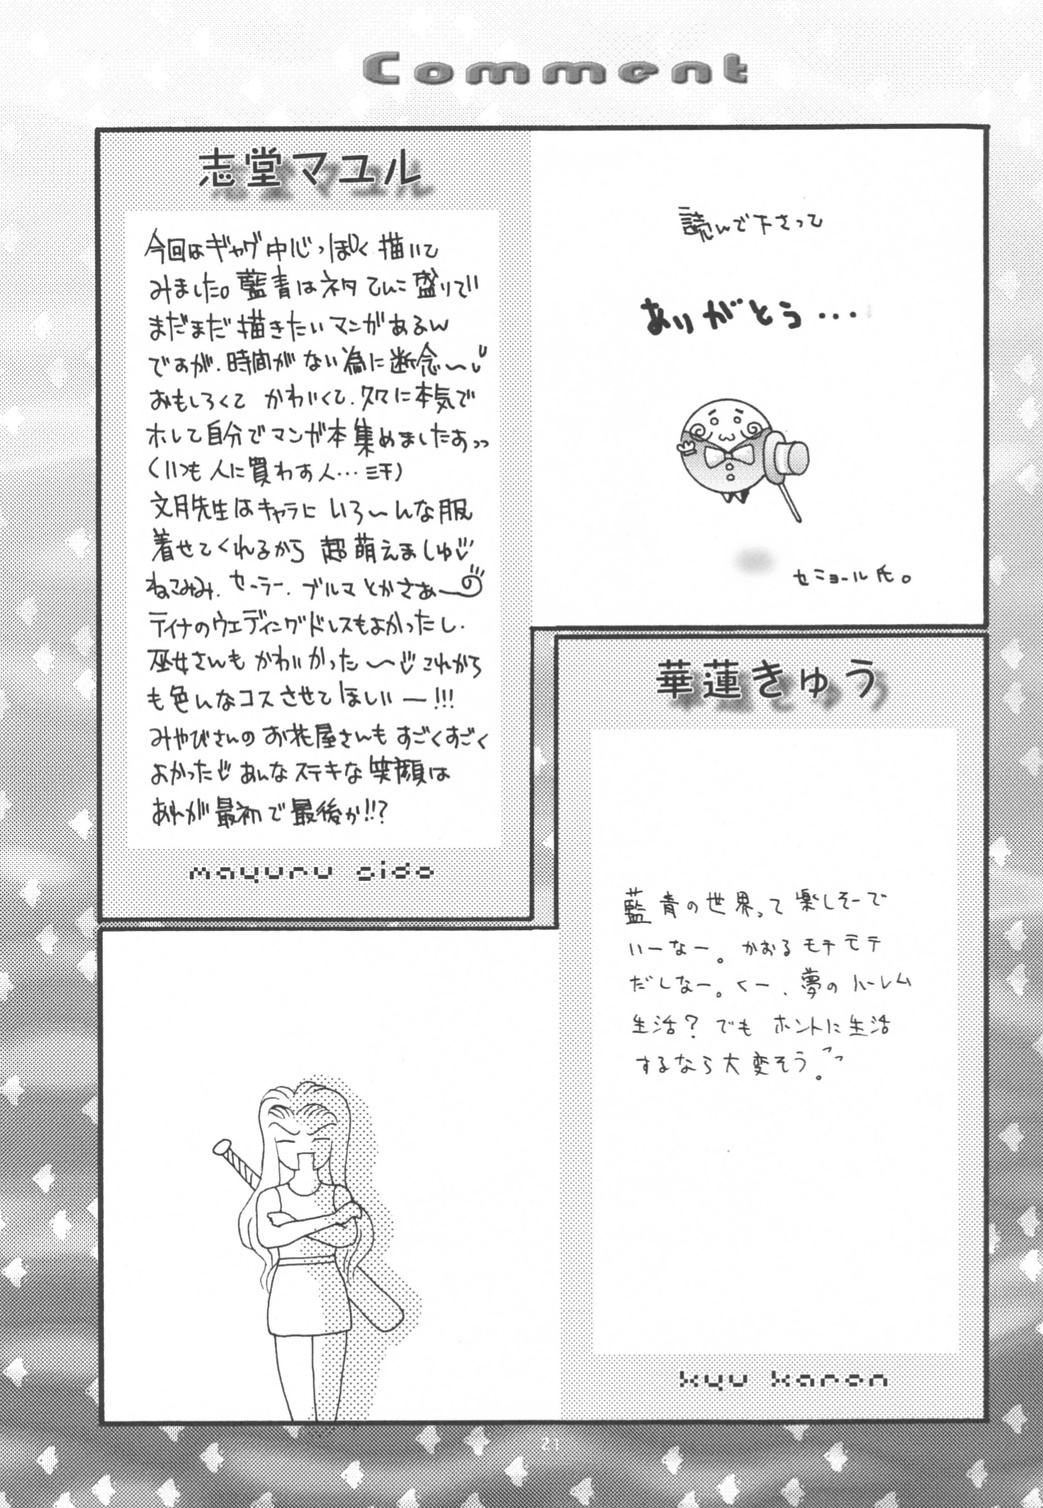 Comment
志堂マユル
今回はギャグ中心っぽく描いて
みました。藍青はネタてんこ盛りでい
まだまだ描きたいマンガがあるん
ですが、時間がない為に断念〜
おもしろくて かわいくて、久々に本気で
ホレて自分でマンガ本集めましたあっっ
(いつも人に買わす人…ミ汗)
文月先生はキャラに いろ〜んな服
着せてくれるから 超萌えましゅ
ねこみみ、セーラー、ブルマとかさぁ〜
ティナのウェディングドレスもよかったし、
巫女さんも かわいかった〜 これから
も色んなコスさせてほしいー!!!
みやびさんの お花屋さんも すごくすごく
よかった あんなステキな笑顔は
あれが最初で最後か!!?
mayuru sido
読んで下さって
ありがとう...
セニョール氏。
華蓮きゅう
藍青の世界って楽しそーで
いーなー。かおるモテモテ
だしなー。くー、夢のハーレム
生活? でも ホントに生活
するなら大変そう。
kyu karen
21